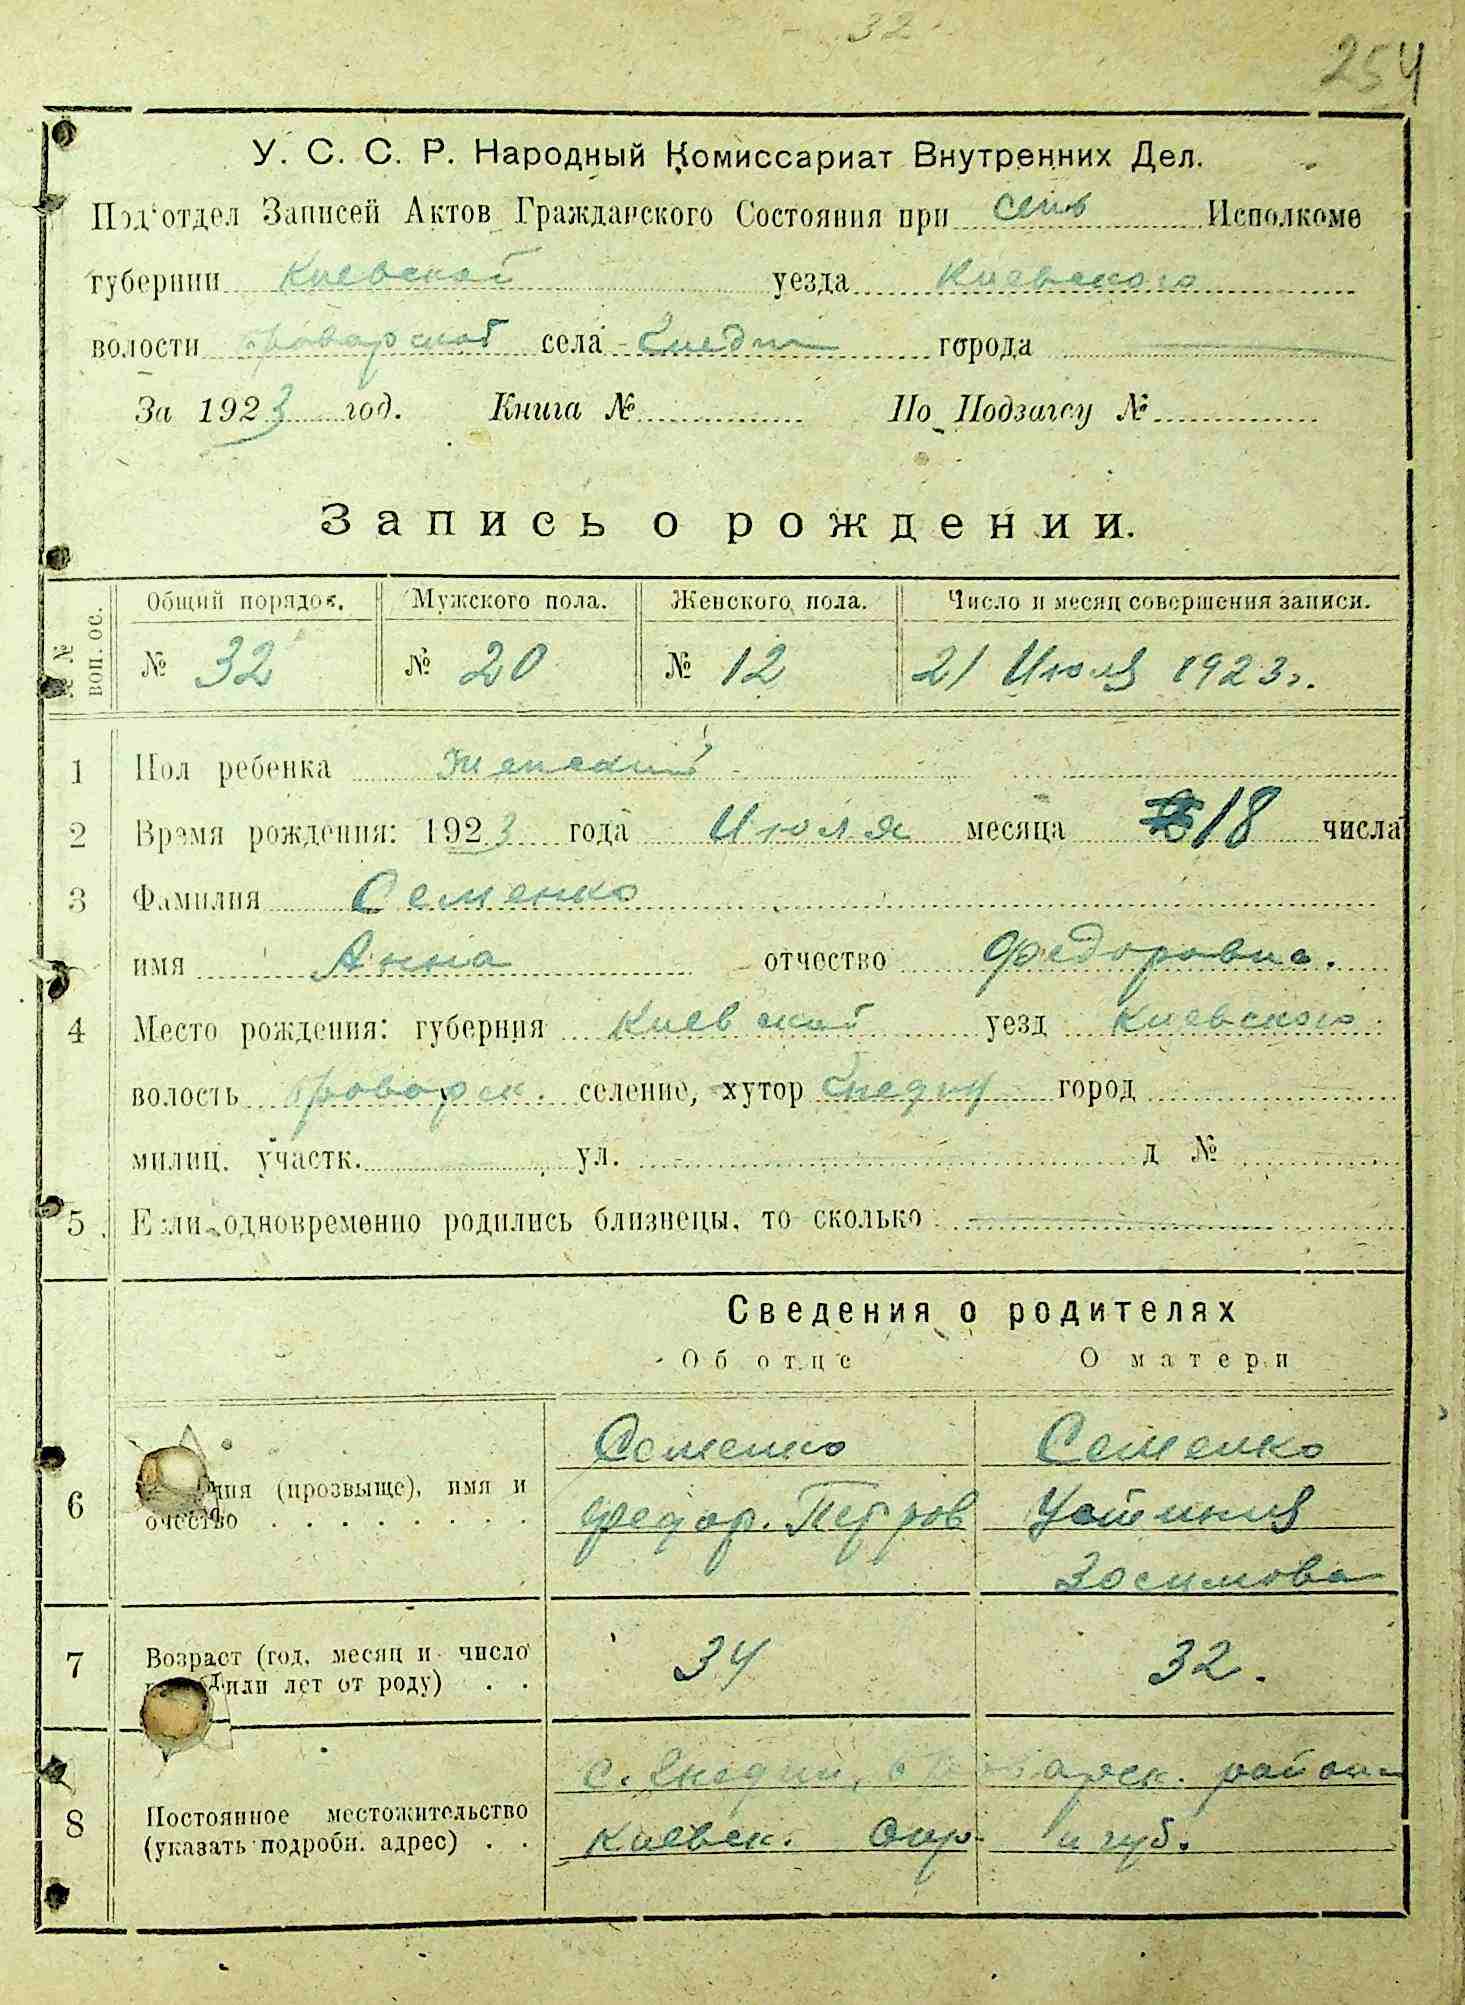 32
254
У. С. С. Р. Народный Комиссариат Внутренних Дел.
Под'отдел Записей Актов Гражданского Состояния при Исполкоме
губернии Киевской уезда Киевского
волости Броварской села города
За 1923 год. Книга № По Подзагсу №
Запись о рождении.
№№ воп. ос.
Общий порядок. Мужского пола. Женского пола. Число и месяц совершения записи.
№ 32 № 20 № 12 21 Июля 1923 г.
1 Пол ребенка Женский
2 Время рождения: 1923 года Июля месяца 18 числа
3 Фамилия Семенко
имя Анна отчество Федоровна.
4 Место рождения: губерния Киевской уезд Киевского
волость Броварск. селение, хутор город
милиц. участк. ул. д №
5 Если одновременно родились близнецы, то сколько
Сведения о родителях
Об отце О матери
Семенко Семенко
6 (прозвыще), имя и
очество
Федор. Петров Устиния
Зосимова
7 Возраст (год, месяц и число
или лет от роду) . . 34 32.
с. Броварск. района
8 Постоянное местожительство
(указать подробн. адрес) . . Киевск. Окр. и губ.